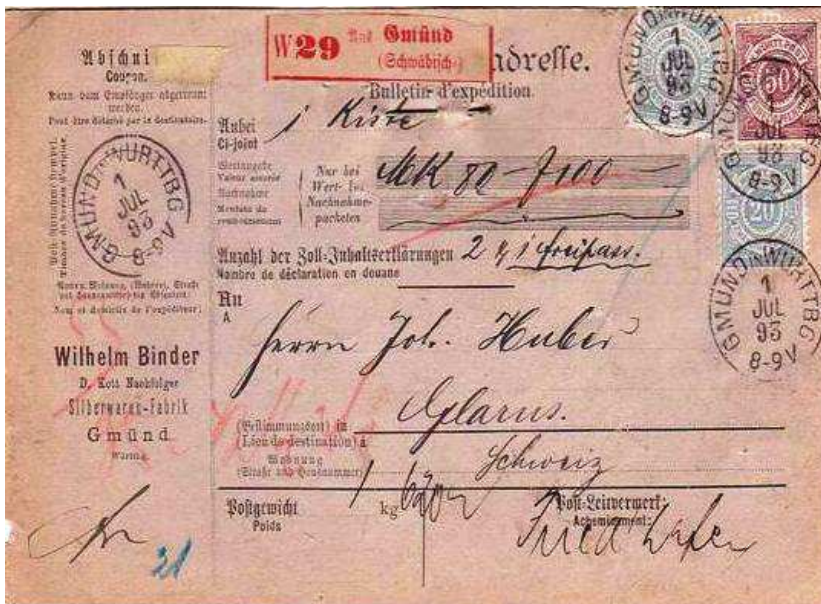 Abschni
Coupon.
Kann vom Empfänger abgetrennt
werden.
Peut être détaché par le destinataire.
GMUND IN WÜRTTBG
1
JUL
93
8-9 V
Wilhelm Binder
D. Kott Nachfolger
Silberwaren-Fabrik
Gmünd
Württg.
21
W 29 Aus Gmünd
(Schwäbisch-)
adresse.
Bulletin d'expédition.
Anbei
Ci-joint
1 Kiste
Wertangabe
Valeur assurée
Nachnahme
Montant du
remboursement
Nur bei
Wert- bzw.
Nachnahme-
packeten
MK 80
Anzahl der Zoll-Inhaltserklärungen 2 & 1 Freipass.
Nombre de déclaration en douane
An
A
Herrn Joh. Huber
Glarus.
(Bestimmungsort) in
(Lieu de destination) à
Schweiz
Wohnung
(Straße und Hausnummer)
Postgewicht
Poids
1 kg
Post-Leitvermerk:
Acheminement:
GMUND IN WÜRTTBG
1
JUL
93
8-9 V
50
GMUND IN WÜRTTBG
1
JUL
93
8-9 V
20
GMUND IN WÜRTTBG
1
JUL
93
8-9 V